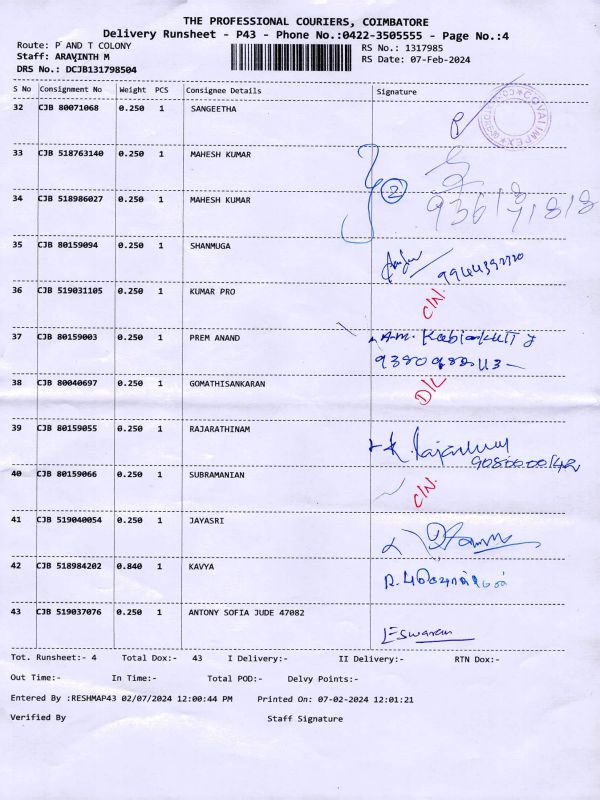 THE PROFESSIONAL COURIERS, COIMBATORE
Delivery Runsheet - P43 - Phone No.:0422-3505555 - Page No.:4
Route: P AND T COLONY
RS No.: 1317985
Staff: ARAVINTH M
RS Date: 07-Feb-2024
DRS No.: DCJB131798504
S No Consignment No Weight PCS Consignee Details Signature
32 CJB 80071068 0.250 1 SANGEETHA
COVAI IMPEX
33 CJB 518763140 0.250 1 MAHESH KUMAR
2
34 CJB 518986027 0.250 1 MAHESH KUMAR
35 CJB 80159094 0.250 1 SHANMUGA
36 CJB 519031105 0.250 1 KUMAR PRO C/N.
37 CJB 80159003 0.250 1 PREM ANAND
38 CJB 80040697 0.250 1 GOMATHISANKARAN D/L
39 CJB 80159055 0.250 1 RAJARATHINAM
40 CJB 80159066 0.250 1 SUBRAMANIAN C/N.
41 CJB 519040054 0.250 1 JAYASRI
42 CJB 518984202 0.840 1 KAVYA
43 CJB 519037076 0.250 1 ANTONY SOFIA JUDE 47082
Eswaran
Tot. Runsheet:- 4 Total Dox:- 43 I Delivery:- II Delivery:- RTN Dox:-
Out Time:- In Time:- Total POD:- Delvy Points:-
Entered By :RESHMAP43 02/07/2024 12:00:44 PM Printed On: 07-02-2024 12:01:21
Verified By Staff Signature